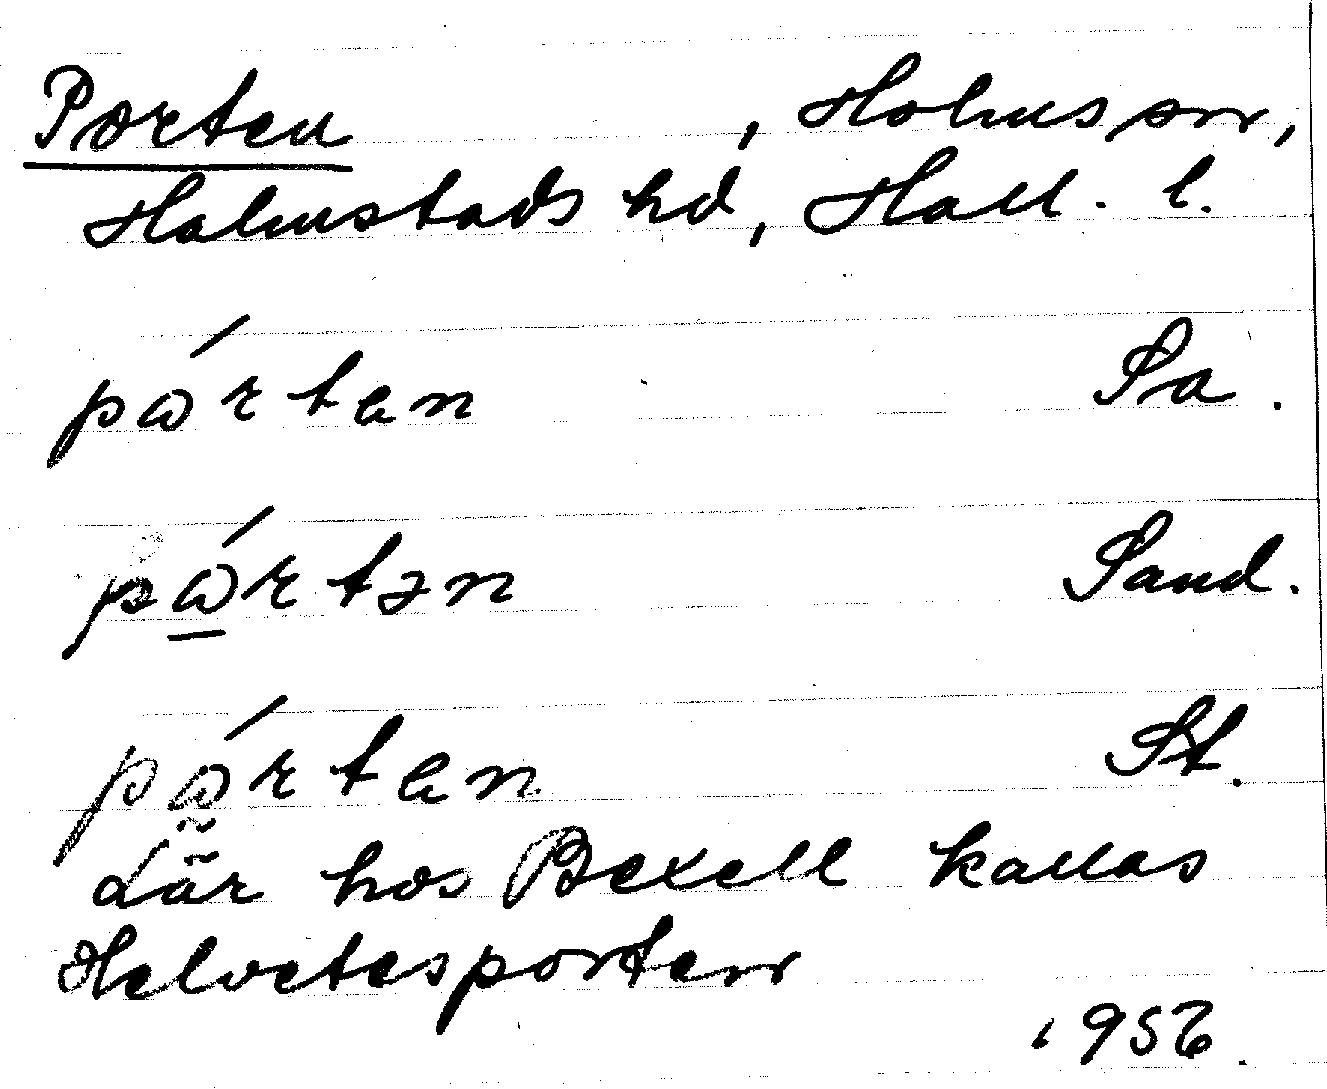 Porten , Holms sn,
Halmstads hd, Hall. l.
pɷ́rten Sa.
pɷ̱́rtən Sand.
pɷ́rten St.
Lär hos Bexell kallas
Helvetesporten
1956.